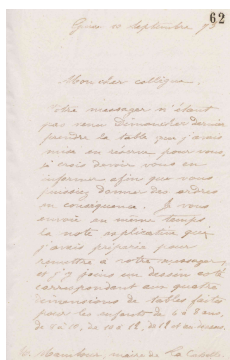 62
10 Septembre 79
Mon cher collègue,
Votre messager n'étant
pas venu Dimanche dernier
prendre la table que j'avais
mise en réserve pour vous,
je crois devoir vous en
informer afin que vous
puissiez donner des ordres
en conséquence. Je vous
envoie en même temps
la note explicative que
j'avais préparée pour
remettre à votre messager,
et j'y joins un dessin coté
correspondant aux quatre
dimensions de tables faites
pour les enfants de 6 à 8 ans,
de 8 à 10, de 10 à 12, de 12 et au dessus.
maire de